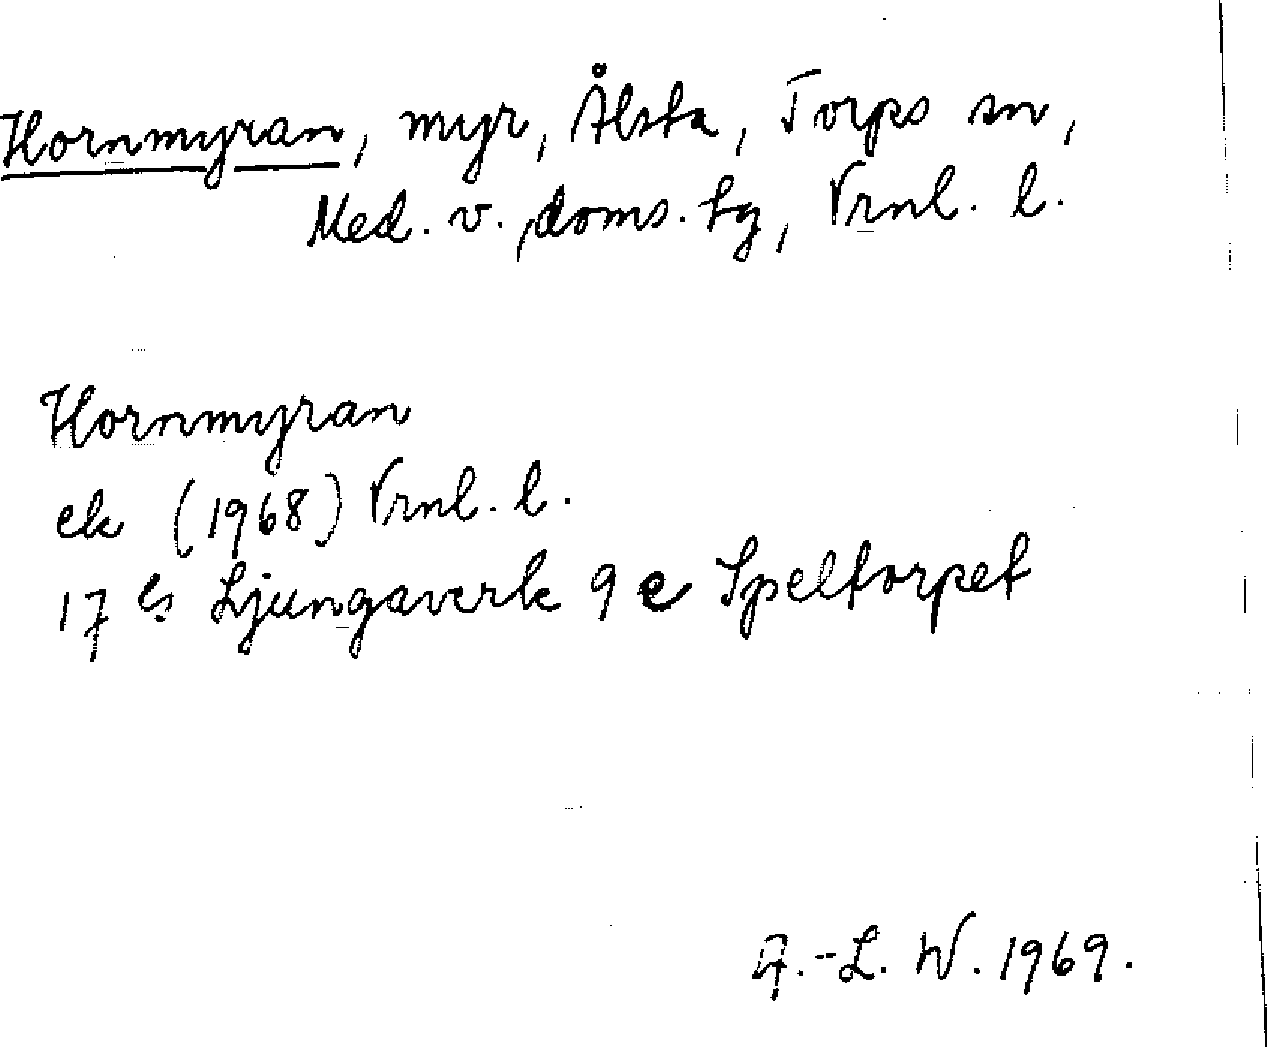 Hornmyran, myr, Ålsta, Torps sn,
Med. v. doms. hg, Vrnl. l.
Hornmyran
ek (1968) Vrnl. l.
17 es Ljungaverk 9 e Speltorpet
A.-L. W. 1969.